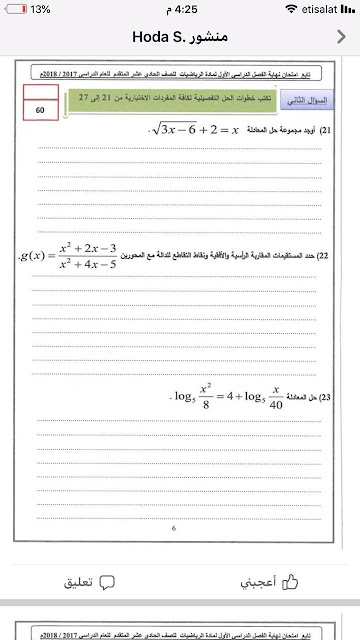 13% 4:25 م etisalat
منشور .Hoda S
تابع امتحان نهاية الفصل الدراسي الأول لمادة الرياضيات للصف الحادي عشر المتقدم للعام الدراسي 2017 / 2018م
السؤال الثاني
تكتب خطوات الحل التفصيلية لكافة المفردات الاختيارية من 21 إلى 27
60
21) أوجد مجموعة حل المعادلة √3x−6 + 2 = x .
22) حدد المستقيمات المقاربة الرأسية والأفقية ونقاط التقاطع للدالة مع المحورين g(x) = (x² + 2x − 3)/(x² + 4x − 5).
23) حل المعادلة log₅ x²/8 = 4 + log₅ x/40 .
6
أعجبني تعليق
تابع امتحان نهاية الفصل الدراسي الأول لمادة الرياضيات للصف الحادي عشر المتقدم للعام الدراسي 2017 / 2018م